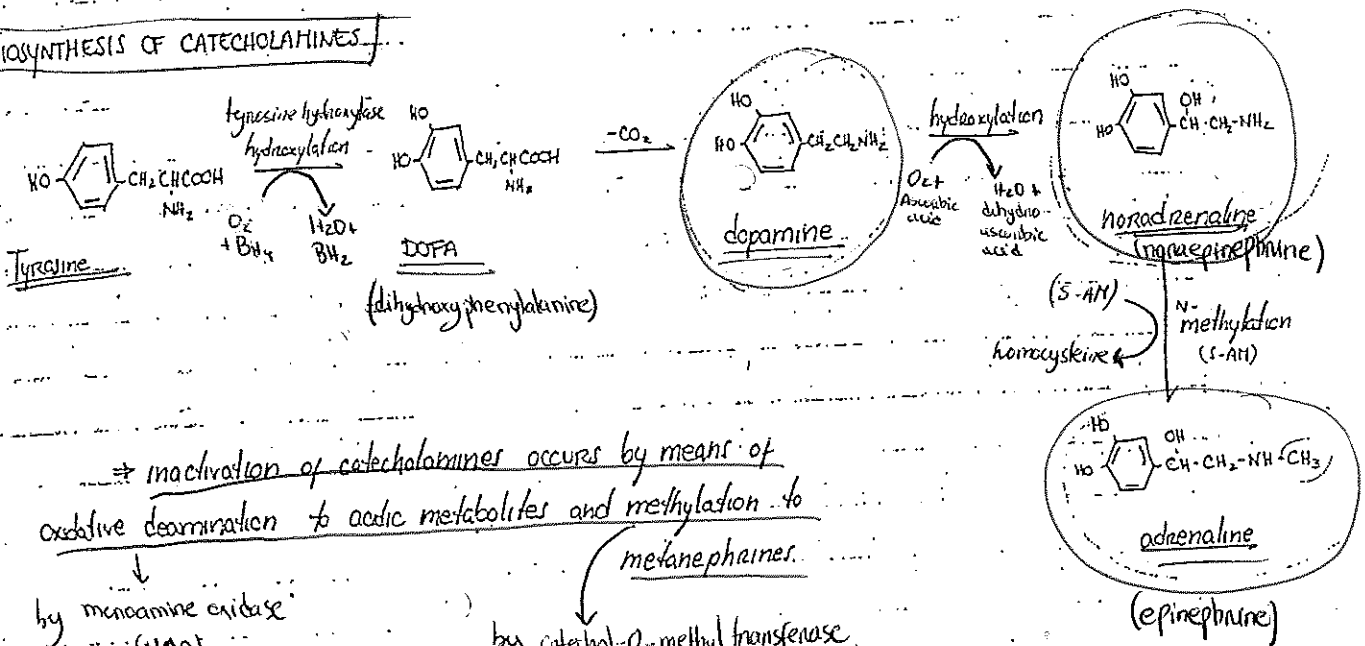 IOSYNTHESIS OF CATECHOLAMINES
HO
CH₂CHCOOH
NH₂
Tyrosine
tyrosine hydroxylase
hydroxylation
O₂
+ BH₄
H₂O+
BH₂
HO
HO
CH₂CHCOOH
NH₂
DOPA
(dihydroxyphenylalanine)
-CO₂
HO
HO
CH₂CH₂NH₂
dopamine
hydroxylation
O₂+
Ascorbic
acid
H₂O +
dihydro-
ascorbic
acid
HO
HO
OH
CH-CH₂-NH₂
noradrenaline
(noraepinephrine)
(S-AM)
homocysteine
N-
methylation
(S-AM)
HO
HO
OH
CH-CH₂-NH-CH₃
adrenaline
(epinephrine)
⇒ inactivation of catecholamines occurs by means of
oxidative deamination to acidic metabolites and methylation to
metanephrines.
by monoamine oxidase
by catechol-O-methyl transferase